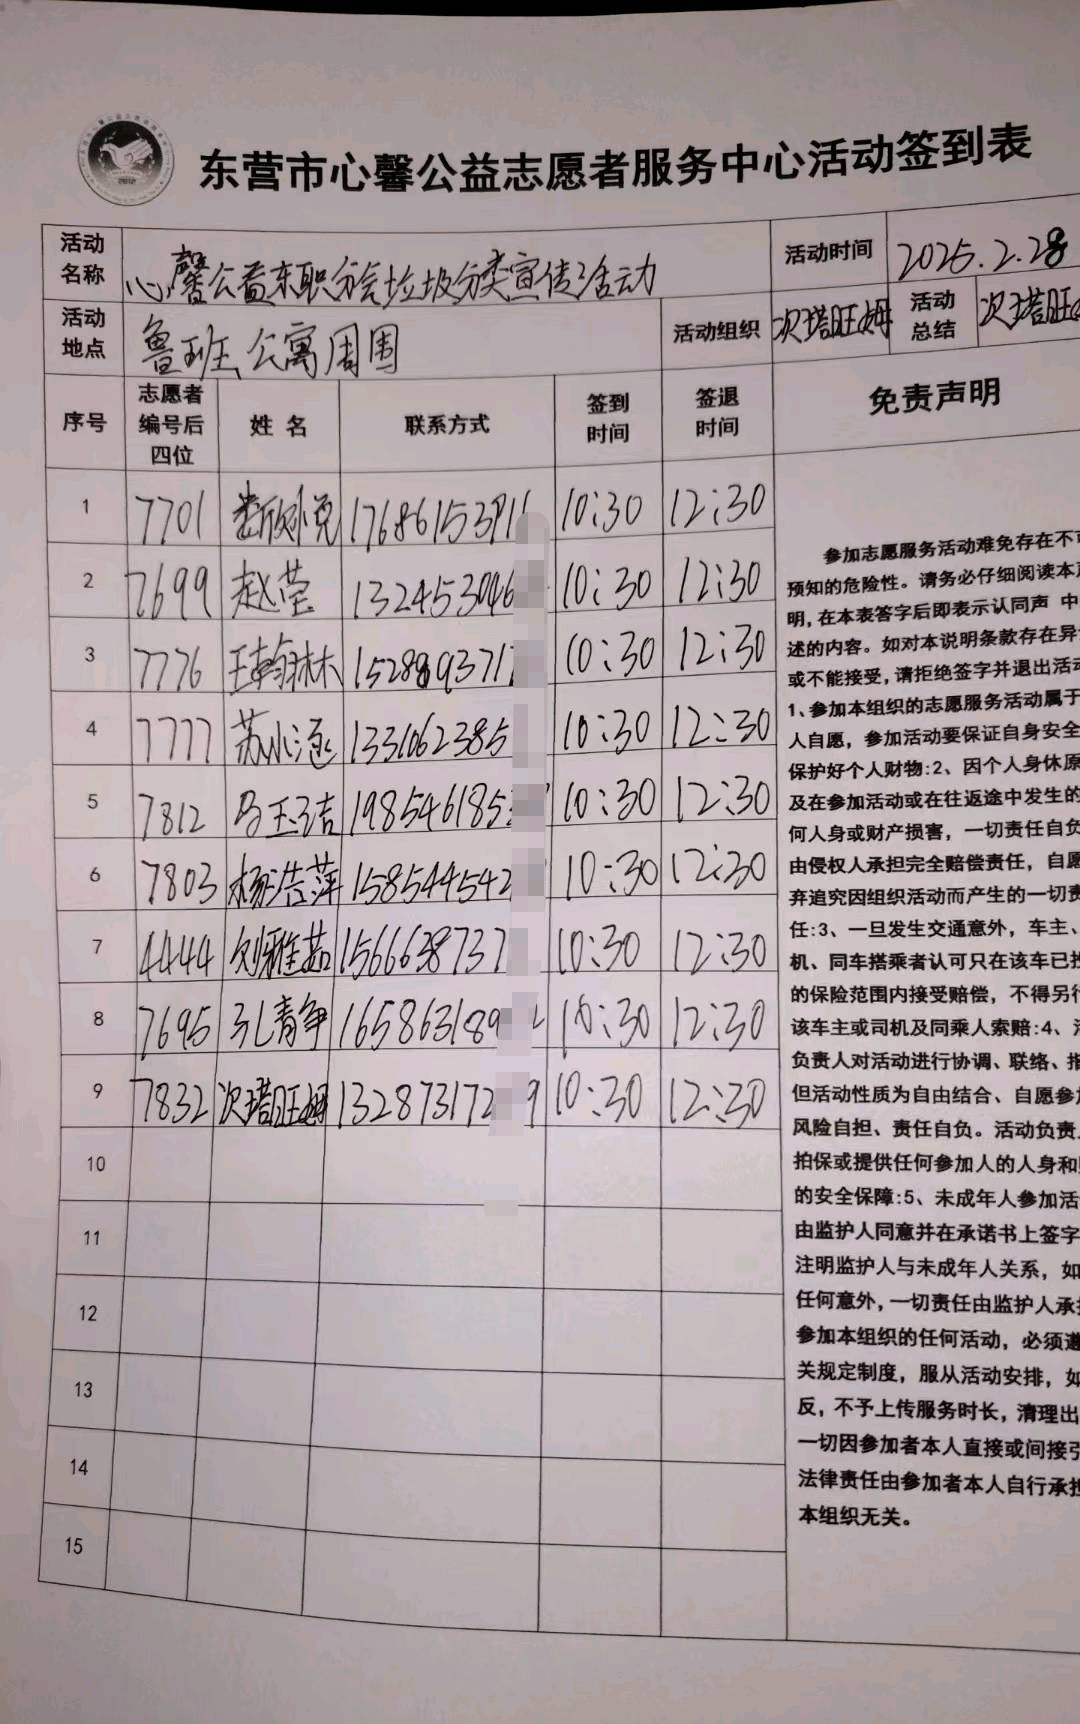 东营市心馨公益志愿者服务中心活动签到表
活动名称 心馨公益东职分会垃圾分类宣传活动 活动时间 2025.2.28
活动地点 鲁班公寓周围 活动组织 次塔旺姆 活动总结 次塔旺
序号 志愿者编号后四位 姓名 联系方式 签到时间 签退时间 免责声明
1 7701 娄欣悦 176861539 10:30 12:30
2 7699 赵莹 132453046 10:30 12:30
3 7776 王翰林 152889371 10:30 12:30
4 7777 苏小涵 1331062385 10:30 12:30
5 7812 马玉洁 1985461853 10:30 12:30
6 7803 杨浩萍 158544542 10:30 12:30
7 4444 刘雅茹 1566638737 10:30 12:30
8 7695 孔青争 165863189 2 10:30 12:30
9 7832 次塔旺姆 132873172 9 10:30 12:30
10
11
12
13
14
15
参加志愿服务活动难免存在不可
预知的危险性。请务必仔细阅读本声
明,在本表答字后即表示认同声 中
述的内容。如对本说明条款存在异
或不能接受,请拒绝签字并退出活动
1、参加本组织的志愿服务活动属于
人自愿，参加活动要保证自身安全
保护好个人财物:2、因个人身休原
及在参加活动或在往返途中发生的
何人身或财产损害，一切责任自负
由侵权人承担完全赔偿责任，自愿
弃追究因组织活动而产生的一切责
任:3、一旦发生交通意外，车主、
机、同车搭乘者认可只在该车已投
的保险范围内接受赔偿，不得另行
该车主或司机及同乘人索赔:4、
负责人对活动进行协调、联络、指
但活动性质为自由结合、自愿参加
风险自担、责任自负。活动负责
拍保或提供任何参加人的人身和
的安全保障:5、未成年人参加活
由监护人同意并在承诺书上签字
注明监护人与未成年人关系，如
任何意外,一切责任由监护人承
参加本组织的任何活动，必须遵
关规定制度，服从活动安排，如
反，不予上传服务时长，清理出
一切因参加者本人直接或间接引
法律责任由参加者本人自行承担
本组织无关。